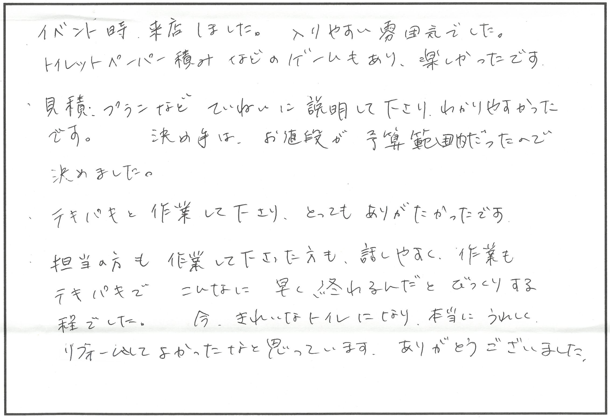 イベント時、来店しました。 入りやすい雰囲気でした。
トイレットペーパー積みなどのゲームもあり、楽しかったです
・見積、プランなど ていねいに説明して下さり、わかりやすかった
です。 決め手は、お値段が予算範囲内だったので
決めました。
・テキパキと作業して下さり、とってもありがたかったです
・担当の方も作業して下さった方も、話しやすく、作業も
テキパキで こんなに早く終わるんだとびっくりする
程でした。 今、きれいなトイレになり、本当にうれしく
リフォームしてよかったなと思っています。ありがとうございました。